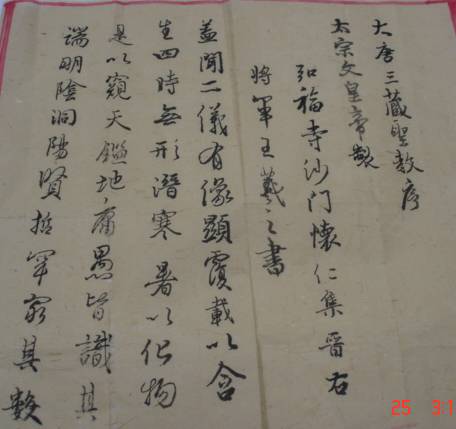 大唐三藏聖教序
太宗文皇帝製
弘福寺沙門懷仁集晉右
將軍王羲之書
蓋聞二儀有像顯覆載以含
生四時無形潛寒暑以化物
是以窺天鑑地庸愚皆識其
端明陰洞陽賢哲罕窮其數
25 3:1